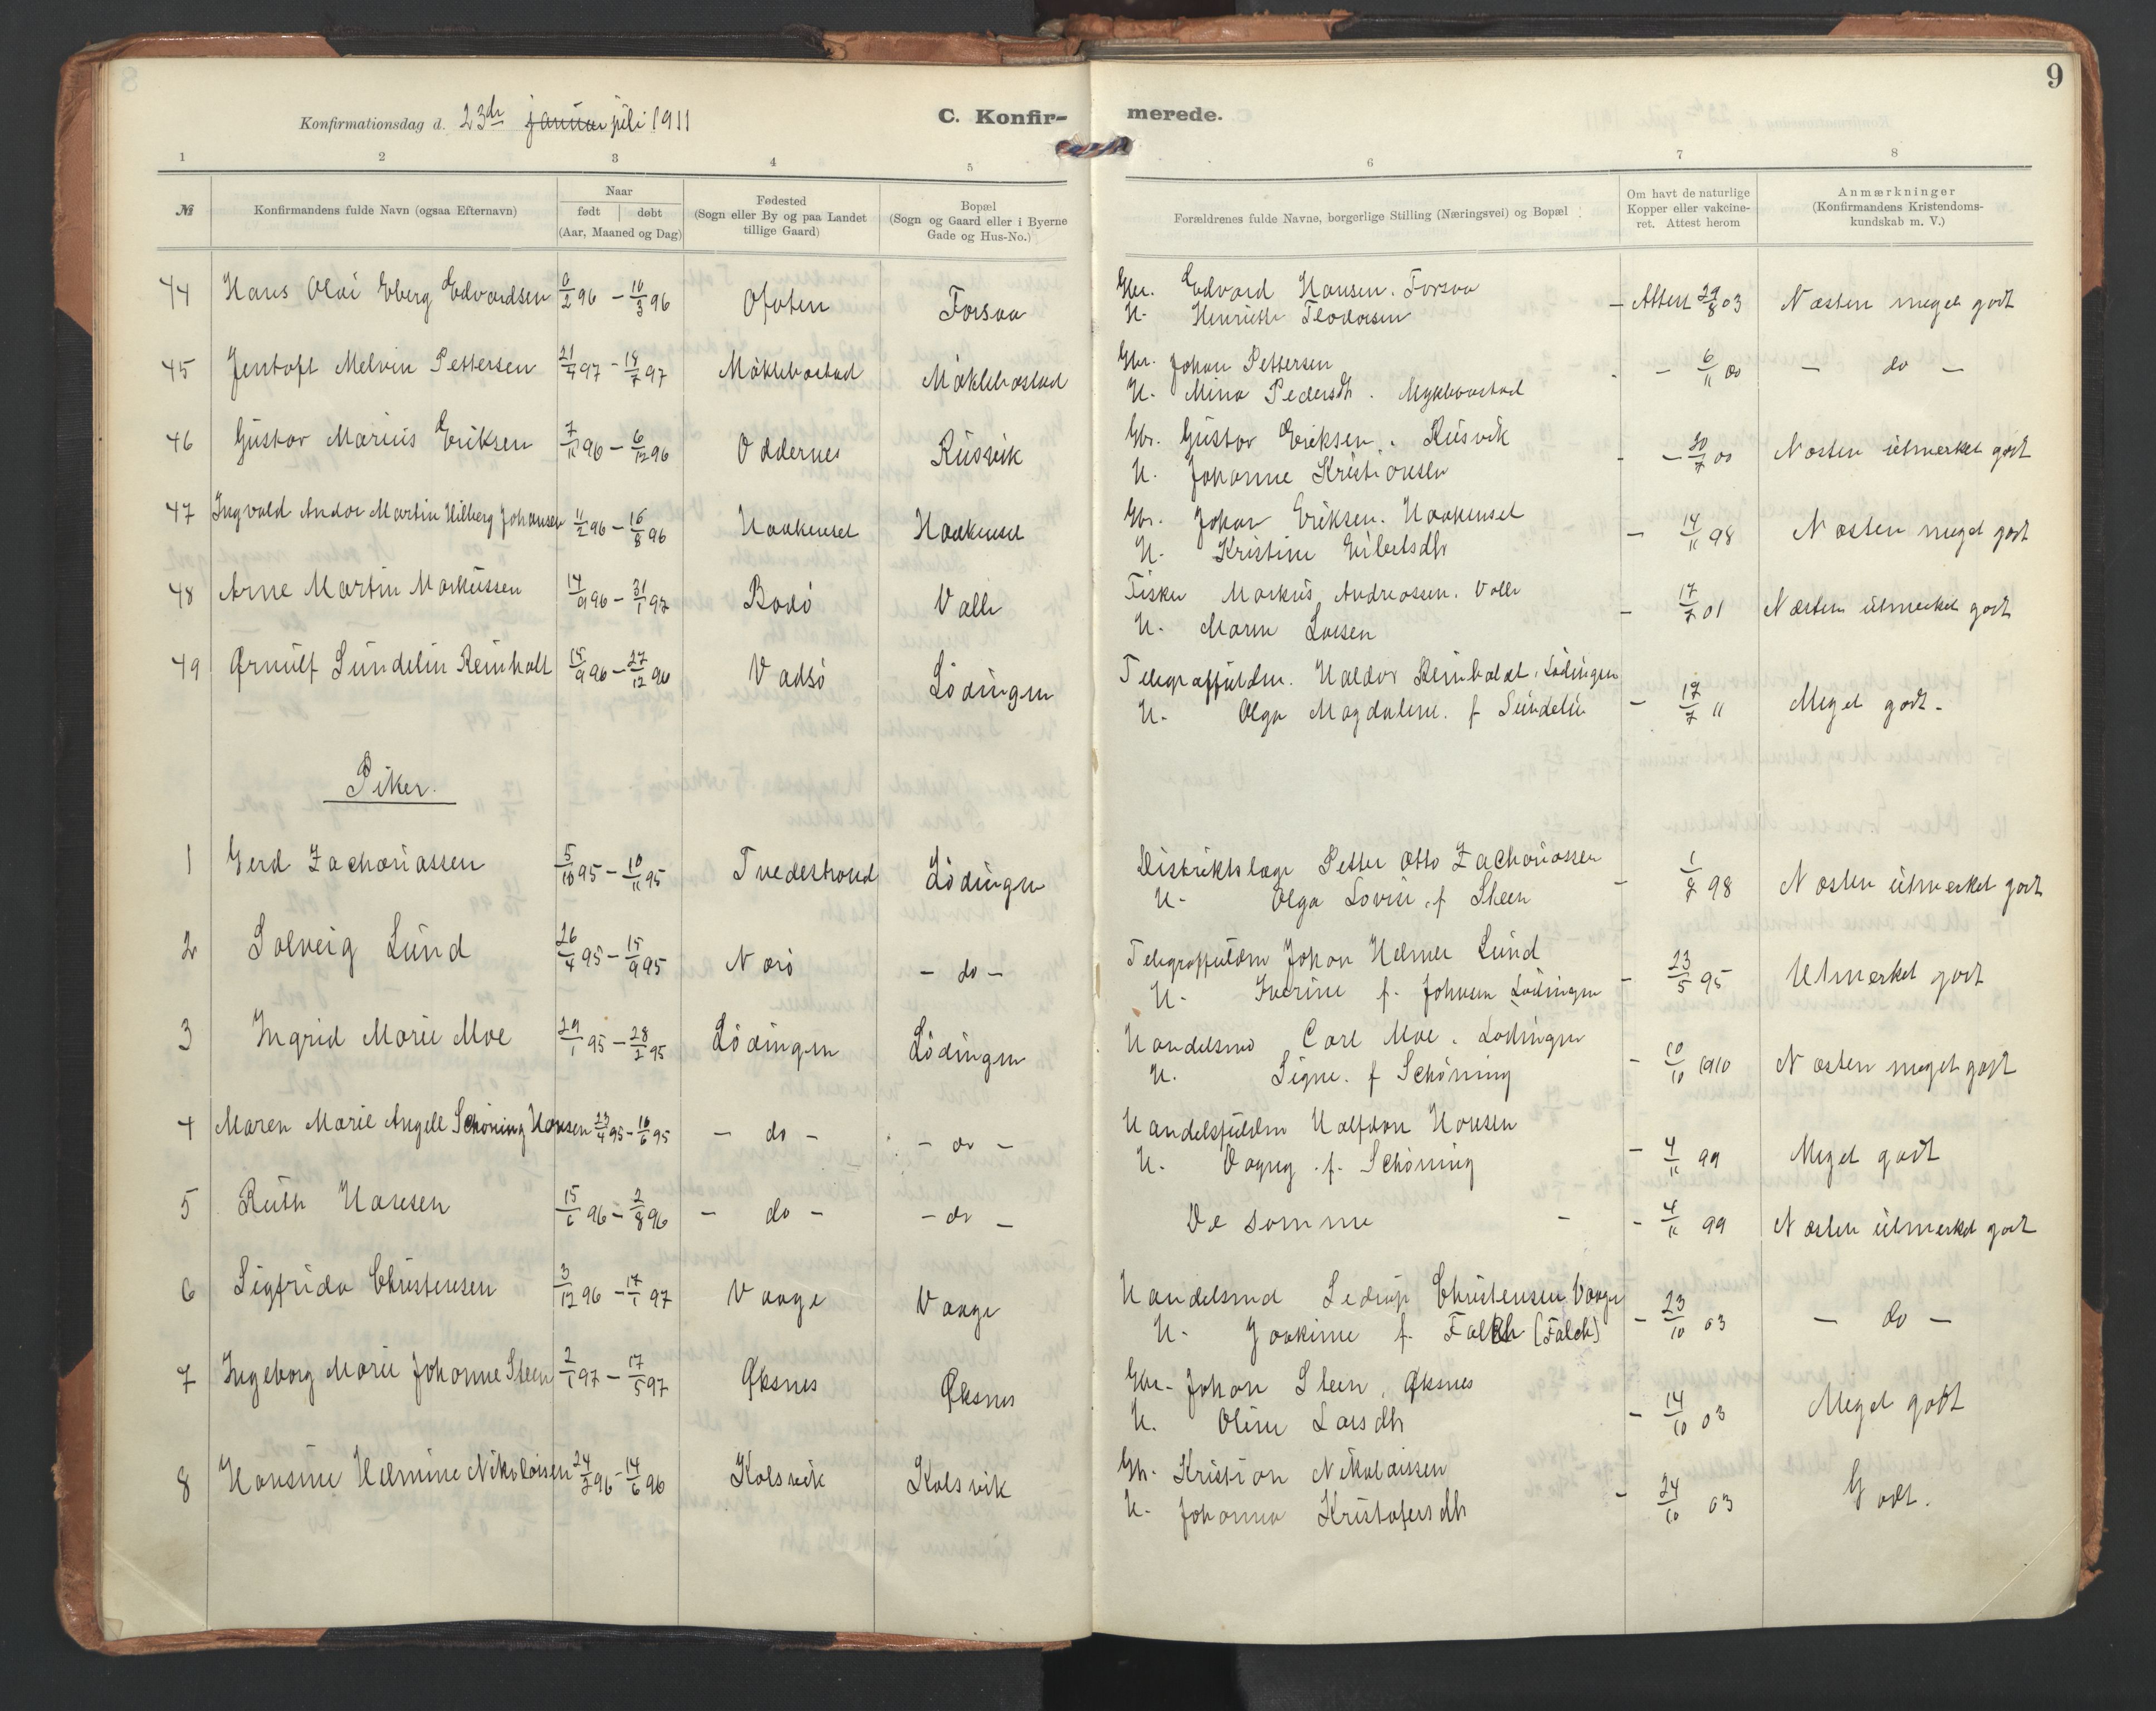 9
Konfirmationsdag d. 23de januar juli 1911
C. Konfir-
merede.
1 2 3 4 5 6 7 8
№
Konfirmandens fulde Navn (ogsaa Efternavn)
Naar
født | døbt
(Aar, Maaned og Dag)
Fødested
(Sogn eller By og paa Landet
tillige Gaard)
Bopæl
(Sogn og Gaard eller i Byerne
Gade og Hus-No.)
Forældrenes fulde Navne, borgerlige Stilling (Næringsvei) og Bopæl
Om havt de naturlige
Kopper eller vakcine-
ret. Attest herom
Anmærkninger
(Konfirmandens Kristendoms-
kundskab m. V.)
44 Hans Olai Eberg Edvardsen 6/2 96 – 10/3 96 Ofoten Forsaa Gbr. Edvard Hansen. Forsaa – Attest 29/8 03 Næsten meget godt
H. Henriette Teodorsen
45 Jentoft Melvin Pettersen 21/4 97 – 18/7 97 Möklebostad Möklebostad Gbr. Johan Pettersen – 6/11 00 – do –
H. Mina Pedersdtr. Myklebostad
46 Gustav Marius Eriksen 7/11 96 – 6/12 96 Oddernes Rusvik Gbr. Gustav Eriksen. Rusvik – 30/7 00 Næsten utmerket godt
H. Johanne Kristiansen
47 Ingvald Andor Martin Hilberg Johansen 11/2 96 – 16/8 96 Haakensel Haakensel Gbr. Johan Eriksen. Haakensel – 14/11 98 Næsten meget godt
H. Kristine Eilertsdtr
48 Arne Martin Markussen 14/9 96 – 31/1 97 Bodö Valle Fisker Markus Andreassen. Valle – 17/7 01 Næsten utmerket godt
H. Maren Larsen
49 Arnulf Sundelin Reinholt 15/9 96 – 27/12 96 Vadsö Lödingen Telegraffuldm. Haldor Reinholdt, Lödingen – 17/7 11 Meget godt.
H. Olga Magdalene f Sundelin
Piker.
1 Gerd Zachariassen 5/10 95 – 10/11 95 Tvedestrand Lödingen Distriktslæge Petter Otto Zachariassen – 1/7 98 Næsten utmerket godt
H. Olga Lovise f Steen
2 Solveig Lund 26/4 95 – 15/9 95 Nærö – do – Telegraffuldm Johan Helmer Lund – 23/5 95 Utmerket godt
H. Iverine f. Johnsen Lödingen
3 Ingrid Marie Moe 29/1 95 – 28/2 95 Lödingen Lödingen Handelsmd Carl Moe. Lödingen – 10/10 1910 Næsten meget godt
H. Signe. f Schöning
4 Maren Marie Angell Schöning Hansen 23/4 95 – 16/6 95 – do – – do – Handelsfuldm Halfdan Hansen – 4/11 99 Meget godt
H. Dagny f. Schöning
5 Ruth Hansen 15/6 96 – 2/8 96 – do – – do – De samme – – 4/11 99 Næsten utmerket godt
6 Sigfrida Christensen 3/12 96 – 17/1 97 Vaage Vaage Handelsmd Sedrup Christensen Vaage – 23/10 03 – do –
H. Joakime f. Falch (Falch)
7 Ingeborg Marie Johanne Steen 2/1 97 – 17/5 97 Øksnes Øksnes Gbr. Johan Steen, Øksnes – 14/10 03 Meget godt
H. Oline Larsdtr
8 Hansine Helmine Nikolaisen 24/2 96 – 14/6 96 Kalsvik Kalsvik Gbr. Kristian Nikolaissen – 24/10 03 Godt.
H. Johanna Kristofersdtr